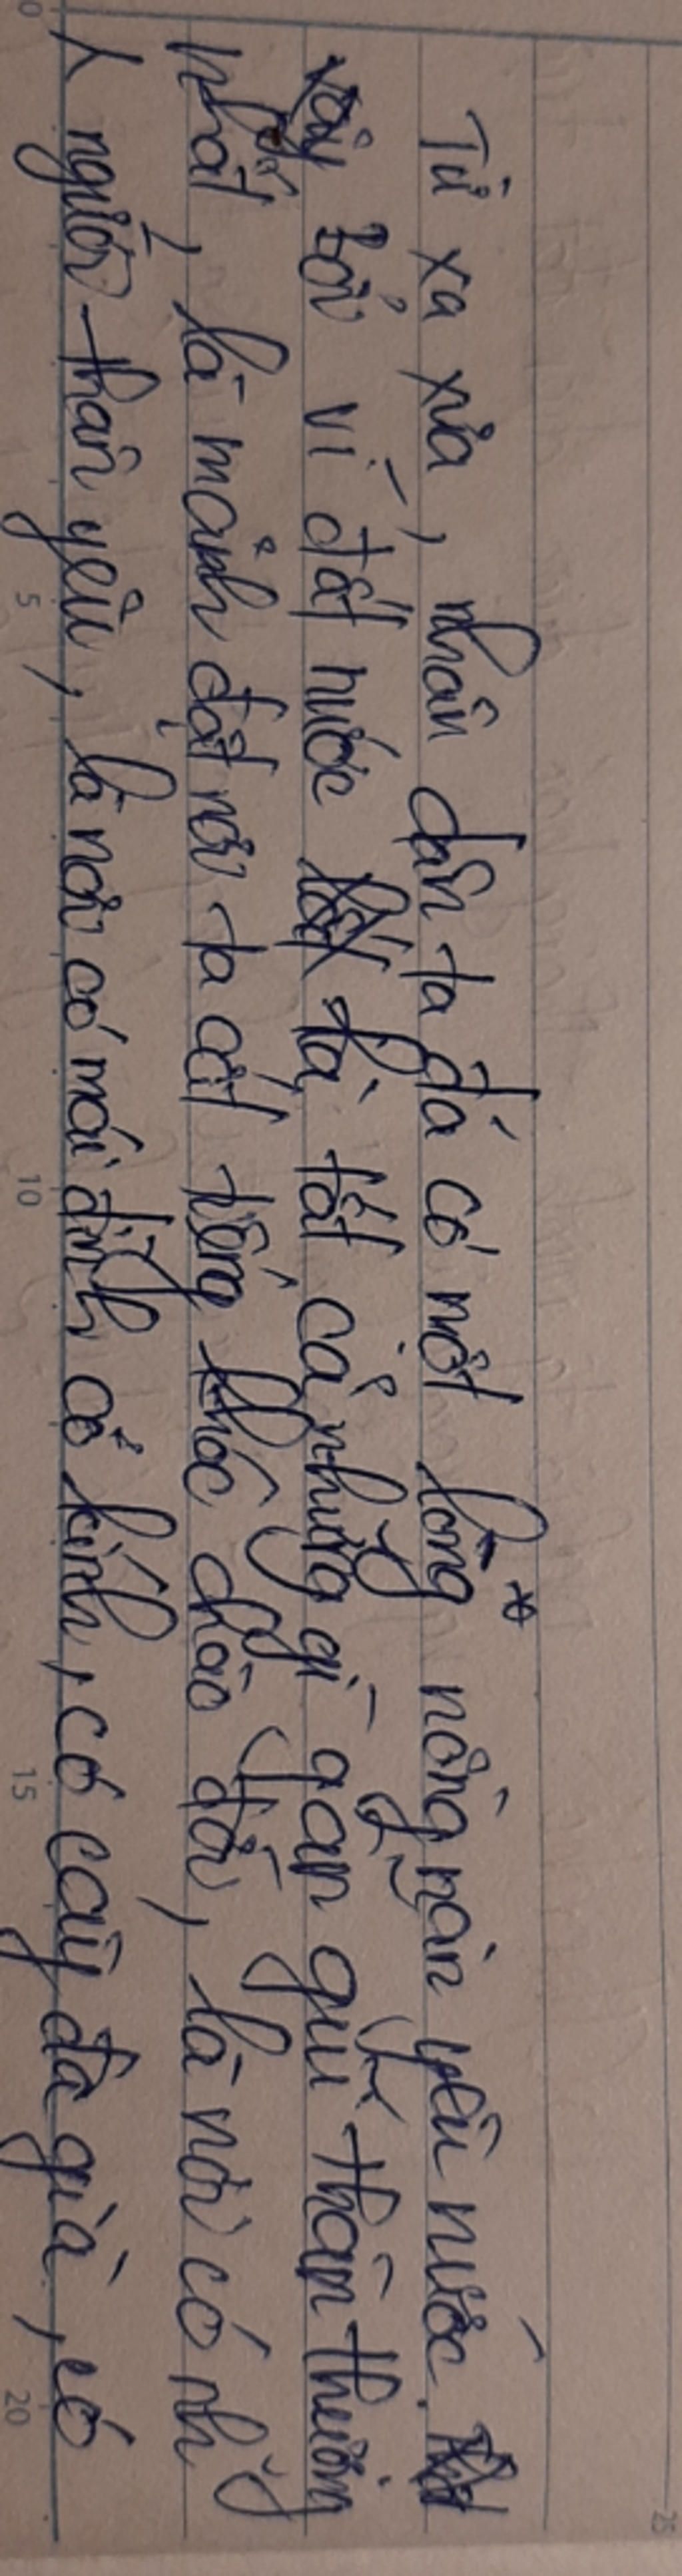 Từ xa xưa, nhân dân ta đã có một lòng * nồng nàn yêu nước.
vậy bởi vì đất nước là tất cả những gì gần gũi thân thương
nhất, là mảnh đất nơi ta cất tiếng khóc chào đời, là nơi có nh~
người thân yêu, là nơi có mái đình cổ kính, có cây đa già, có
0
5
10
15
20
25